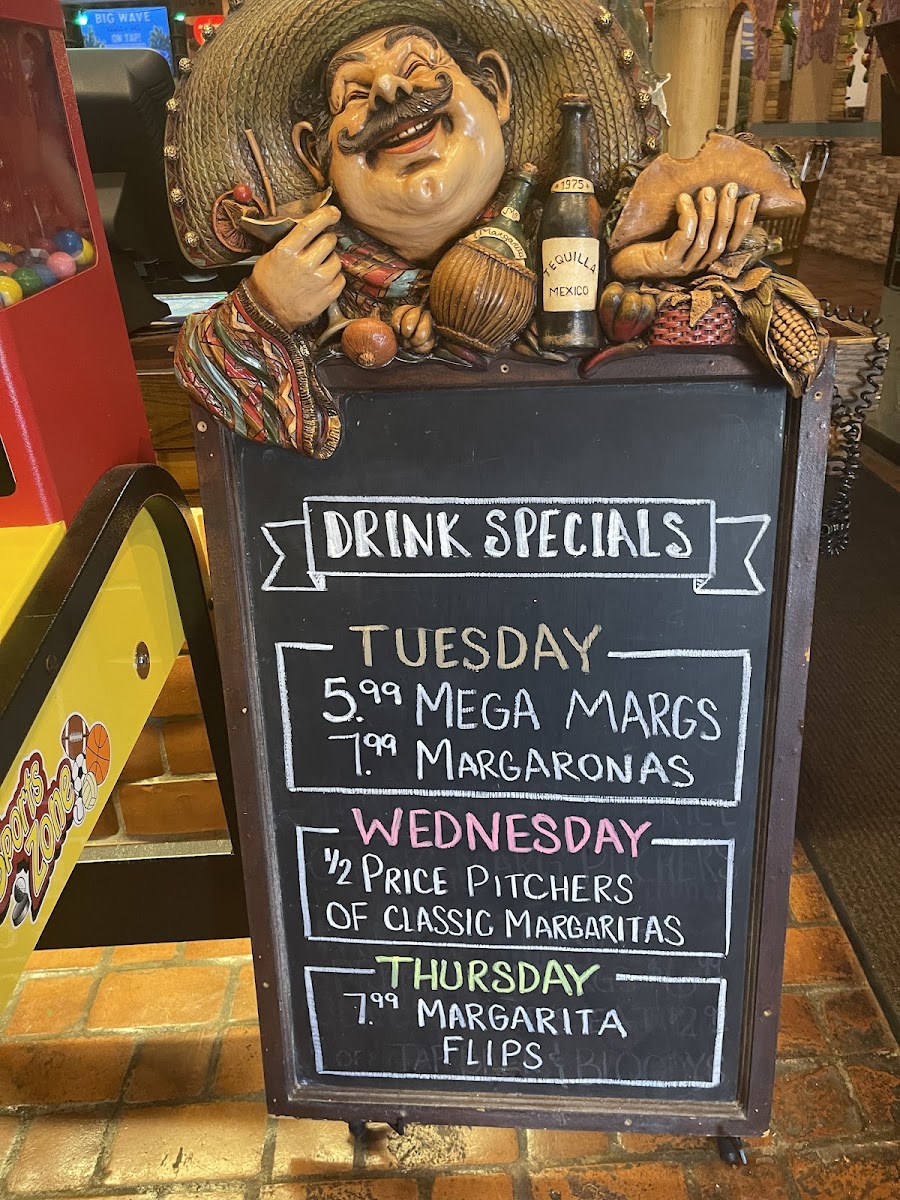 BIG WAVE
ON TAP!
1975
Margarita
TEQUILLA
MEXICO
DRINK SPECIALS
TUESDAY
5.99 MEGA MARGS
7.99 MARGARONAS
WEDNESDAY
1/2 PRICE PITCHERS
OF CLASSIC MARGARITAS
THURSDAY
7.99 MARGARITA
FLIPS
Sports
Zone